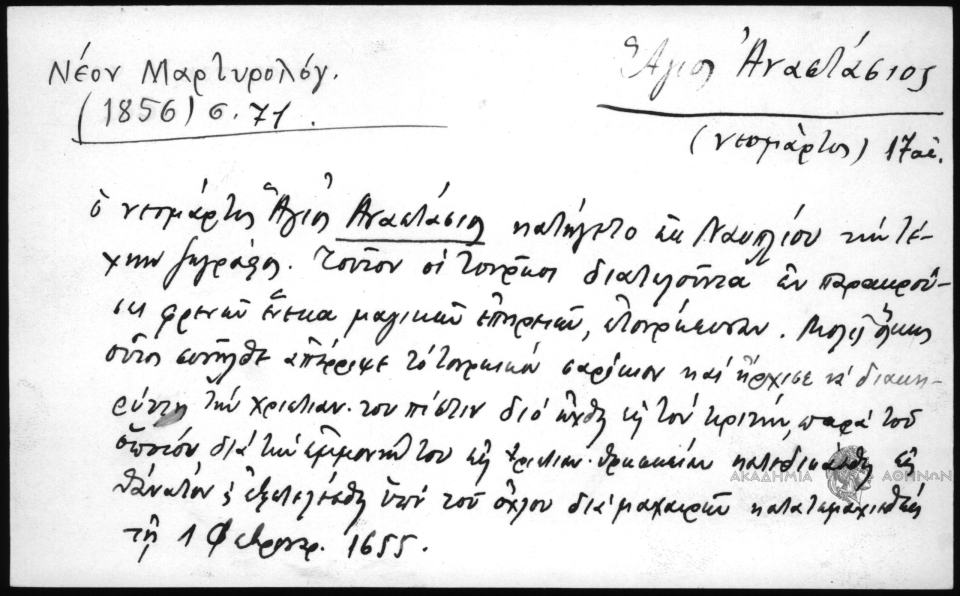 Νέον Μαρτυρολόγ.
(1856) σ. 71.
Ἅγιος Ἀναστάσιος
(νεομάρτυς) 17 αἰ.
ὁ νεομάρτυς Ἅγιος Ἀναστάσιος κατήγετο ἐκ Ναυπλίου τὴν τέ-
χνην ζωγράφος. Τοῦτον οἱ Τοῦρκοι διατελοῦντα ἐν παρακρού-
σει φρενῶν ἕνεκα μαγικῶν ἐπηρειῶν, ἐτούρκευσαν. Μόλις ὅμως
οὗτος συνῆλθε ἀπέρριψε τὸ τουρκικόν σαρίκιον καί ἤρχισε νά διακη-
ρύττη τήν χριστιαν. του πίστιν διό ἤχθη εἰς τόν κριτήν, παρά τοῦ
ὁποίου διά τήν ἐμμονήν του εἰς χριστιαν. θρησκείαν κατεδικάσθη εἰς
θάνατον & ἐξετελέσθη ὑπό τοῦ ὄχλου διά μαχαιρῶν κατατεμαχισθείς
τῇ 1 Φεβρουαρ. 1655.
ΑΚΑΔΗΜΙΑ ΑΘΗΝΩΝ